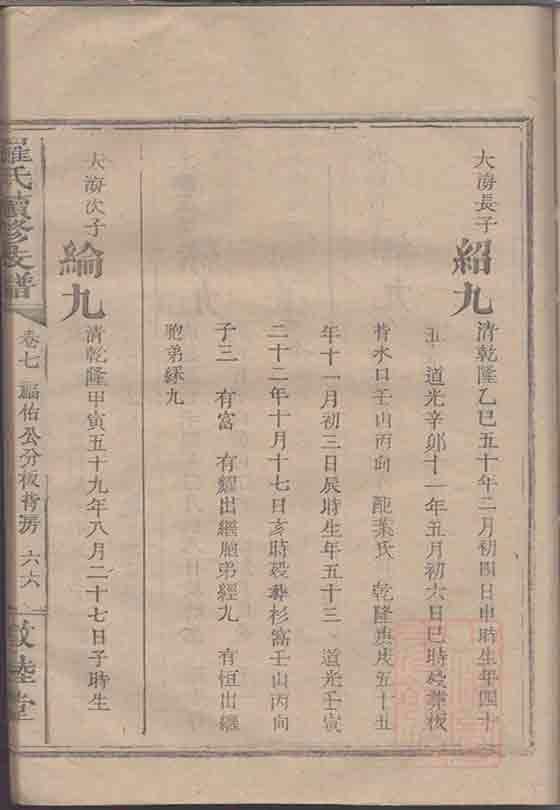 大海長子
紹九
清乾隆乙巳五十年二月初四日申時生年四十
五 道光辛卯十一年五月初六日巳時歿葬板
背水口壬山丙向 配葉氏 乾隆庚戌五十五
年十一月初三日辰時生年五十三 道光壬寅
二十二年十月十七日亥時歿葬杉窩壬山丙向
子三 有富 有耀出繼胞弟經九 有恒出繼
胞弟綵九
大海次子
綸九
清乾隆甲寅五十九年八月二十七日子時生
羅氏續修支譜
卷七 福佑公分板背房 六六
敦睦堂